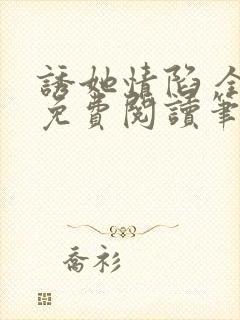 誘她情陷全
免費閱讀筆
喬衫